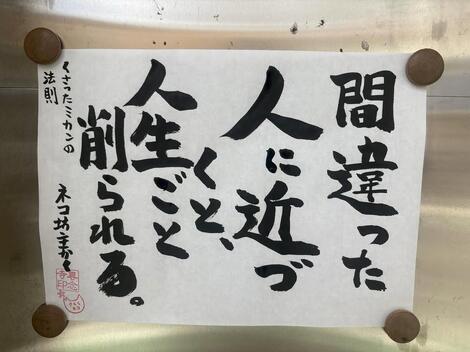 間違った
人に近づ
くと、
人生ごと
削られる。
くさったミカンの
法則
ネコ坊主かく